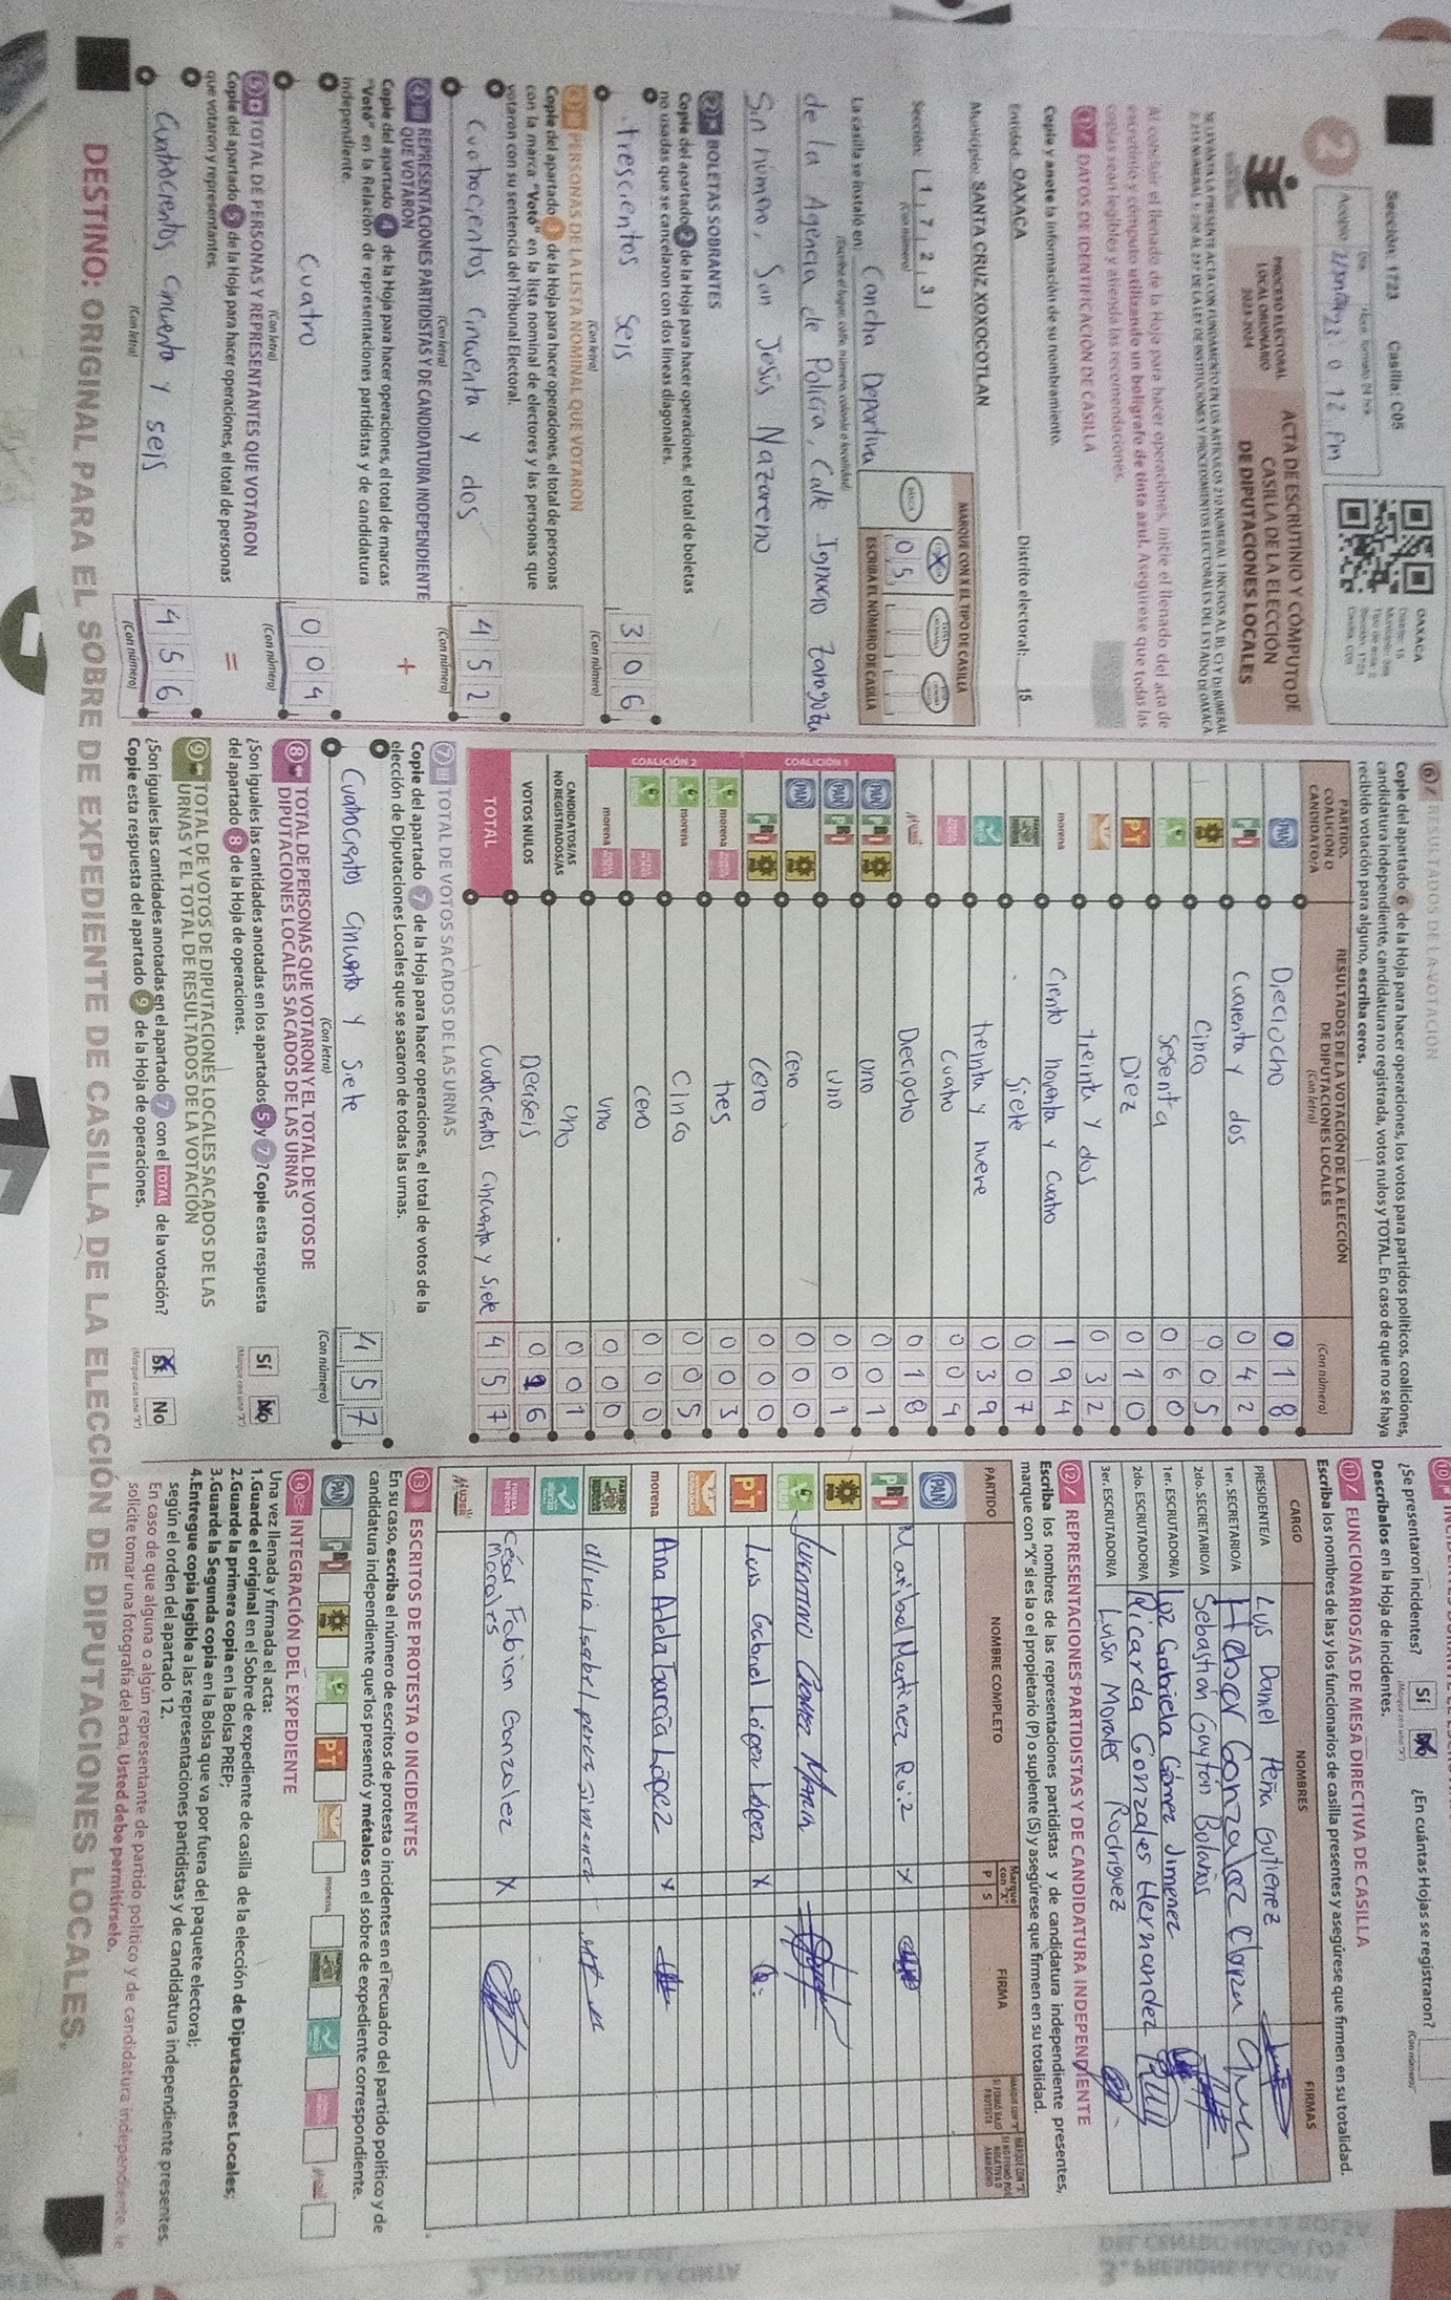 Sección: 1723 Casilla: C05
OAXACA
2
PROCESO ELECTORAL
LOCAL ORDINARIO
2023-2024
ACTA DE ESCRUTINIO Y CÓMPUTO DE
CASILLA DE LA ELECCIÓN
DE DIPUTACIONES LOCALES
Al concluir el llenado de la Hoja para hacer operaciones, inicie el llenado del acta de
escrutinio y cómputo utilizando un bolígrafo de tinta azul. Asegúrese que todas las
copias sean legibles y atienda las recomendaciones.
1 DATOS DE IDENTIFICACIÓN DE CASILLA
Copie y anote la información de su nombramiento.
Entidad: OAXACA Distrito electoral: 15
Municipio: SANTA CRUZ XOXOCOTLAN
Sección: 1 7 2 3
(Con número)
MARQUE CON X EL TIPO DE CASILLA
ESCRIBA EL NÚMERO DE CASILLA
0 5
La casilla se instaló en: Cancha Deportiva
(Escriba el lugar, calle, número, colonia o localidad)
de la Agencia de Policía, Calle Ignacio Zaragoza
Sin número, San Jesús Nazareno
2 BOLETAS SOBRANTES
Copie del apartado 2 de la Hoja para hacer operaciones, el total de boletas
no usadas que se cancelaron con dos líneas diagonales.
trescientos seis 3 0 6
(Con letra) (Con número)
3 PERSONAS DE LA LISTA NOMINAL QUE VOTARON
Copie del apartado 3 de la Hoja para hacer operaciones, el total de personas
con la marca "Votó" en la lista nominal de electores y las personas que
votaron con su sentencia del Tribunal Electoral.
Cuatrocientos cincuenta y dos 4 5 2
(Con letra) (Con número)
4 REPRESENTACIONES PARTIDISTAS Y DE CANDIDATURA INDEPENDIENTE
QUE VOTARON
+
Copie del apartado 4 de la Hoja para hacer operaciones, el total de marcas
"Votó" en la Relación de representaciones partidistas y de candidatura
independiente.
Cuatro 0 0 4
(Con letra) (Con número)
5 TOTAL DE PERSONAS Y REPRESENTANTES QUE VOTARON
=
Copie del apartado 5 de la Hoja para hacer operaciones, el total de personas
que votaron y representantes.
Cuatrocientos cincuenta y seis 4 5 6
(Con letra) (Con número)
6 RESULTADOS DE LA VOTACIÓN
Copie del apartado 6 de la Hoja para hacer operaciones, los votos para partidos políticos, coaliciones,
candidatura independiente, candidatura no registrada, votos nulos y TOTAL. En caso de que no se haya
recibido votación para alguno, escriba ceros.
PARTIDO,
COALICIÓN O
CANDIDATO/A
RESULTADOS DE LA VOTACIÓN DE LA ELECCIÓN
DE DIPUTACIONES LOCALES
(Con letra) (Con número)
PAN Dieciocho 0 1 8
PRI Cuarenta y dos 0 4 2
Cinco 0 0 5
Sesenta 0 6 0
PT Diez 0 1 0
treinta y dos 0 3 2
morena Ciento noventa y cuatro 1 9 4
Siete 0 0 7
treinta y nueve 0 3 9
Cuatro 0 0 4
Dieciocho 0 1 8
COALICIÓN 1
PAN PRI uno 0 0 1
PAN PRI uno 0 0 1
PAN cero 0 0 0
PRI cero 0 0 0
COALICIÓN 2
morena tres 0 0 3
morena Cinco 0 0 5
cero 0 0 0
morena uno 0 0
CANDIDATOS/AS
NO REGISTRADOS/AS uno 0 0 1
VOTOS NULOS Dieciseis 0 1 6
TOTAL Cuatrocientos cincuenta y siete 4 5 7
7 TOTAL DE VOTOS SACADOS DE LAS URNAS
Copie del apartado 7 de la Hoja para hacer operaciones, el total de votos de la
elección de Diputaciones Locales que se sacaron de todas las urnas.
Cuatrocientos cincuenta y siete 4 5 7
(Con letra) (Con número)
8 TOTAL DE PERSONAS QUE VOTARON Y EL TOTAL DE VOTOS DE
DIPUTACIONES LOCALES SACADOS DE LAS URNAS
¿Son iguales las cantidades anotadas en los apartados 5 y 7? Copie esta respuesta
del apartado 8 de la Hoja de operaciones. Sí No
9 TOTAL DE VOTOS DE DIPUTACIONES LOCALES SACADOS DE LAS
URNAS Y EL TOTAL DE RESULTADOS DE LA VOTACIÓN
¿Son iguales las cantidades anotadas en el apartado 7 con el TOTAL de la votación?
Copie esta respuesta del apartado 9 de la Hoja de operaciones. Sí No
¿Se presentaron incidentes? Sí No ¿En cuántas Hojas se registraron?
Descríbalos en la Hoja de incidentes.
11 FUNCIONARIOS/AS DE MESA DIRECTIVA DE CASILLA
Escriba los nombres de las y los funcionarios de casilla presentes y asegúrese que firmen en su totalidad.
CARGO NOMBRES FIRMAS
PRESIDENTE/A Luis Daniel Peña Gutierrez
1er. SECRETARIO/A Heber González
2do. SECRETARIO/A Sebastián Gaytón Bolaños
1er. ESCRUTADOR/A Luz Gabriela Gómez Jimenez
2do. ESCRUTADOR/A Ricarda Gonzales Hernandez
3er. ESCRUTADOR/A Luisa Morales Rodriguez
12 REPRESENTACIONES PARTIDISTAS Y DE CANDIDATURA INDEPENDIENTE
Escriba los nombres de las representaciones partidistas y de candidatura independiente presentes,
marque con "X" si es la o el propietario (P) o suplente (S) y asegúrese que firmen en su totalidad.
PARTIDO NOMBRE COMPLETO P S FIRMA
PAN
PRI Maribel Martinez Ruiz X
Juventino Gomez
PT Luis Gabriel López López X
morena Ana Adela García López X
isabel perez
César Fabian Gonzalez X
Morales
13 ESCRITOS DE PROTESTA O INCIDENTES
En su caso, escriba el número de escritos de protesta o incidentes en el recuadro del partido político y de
candidatura independiente que los presentó y métalos en el sobre de expediente correspondiente.
PAN PRI PT morena
14 INTEGRACIÓN DEL EXPEDIENTE
Una vez llenada y firmada el acta:
1.Guarde el original en el Sobre de expediente de casilla de la elección de Diputaciones Locales;
2.Guarde la primera copia en la Bolsa PREP;
3.Guarde la Segunda copia en la Bolsa que va por fuera del paquete electoral;
4.Entregue copia legible a las representaciones partidistas y de candidatura independiente presentes,
según el orden del apartado 12.
En caso de que alguna o algún representante de partido político y de candidatura independiente, le
solicite tomar una fotografía del acta, Usted debe permitírselo.
DESTINO: ORIGINAL PARA EL SOBRE DE EXPEDIENTE DE CASILLA DE LA ELECCIÓN DE DIPUTACIONES LOCALES.